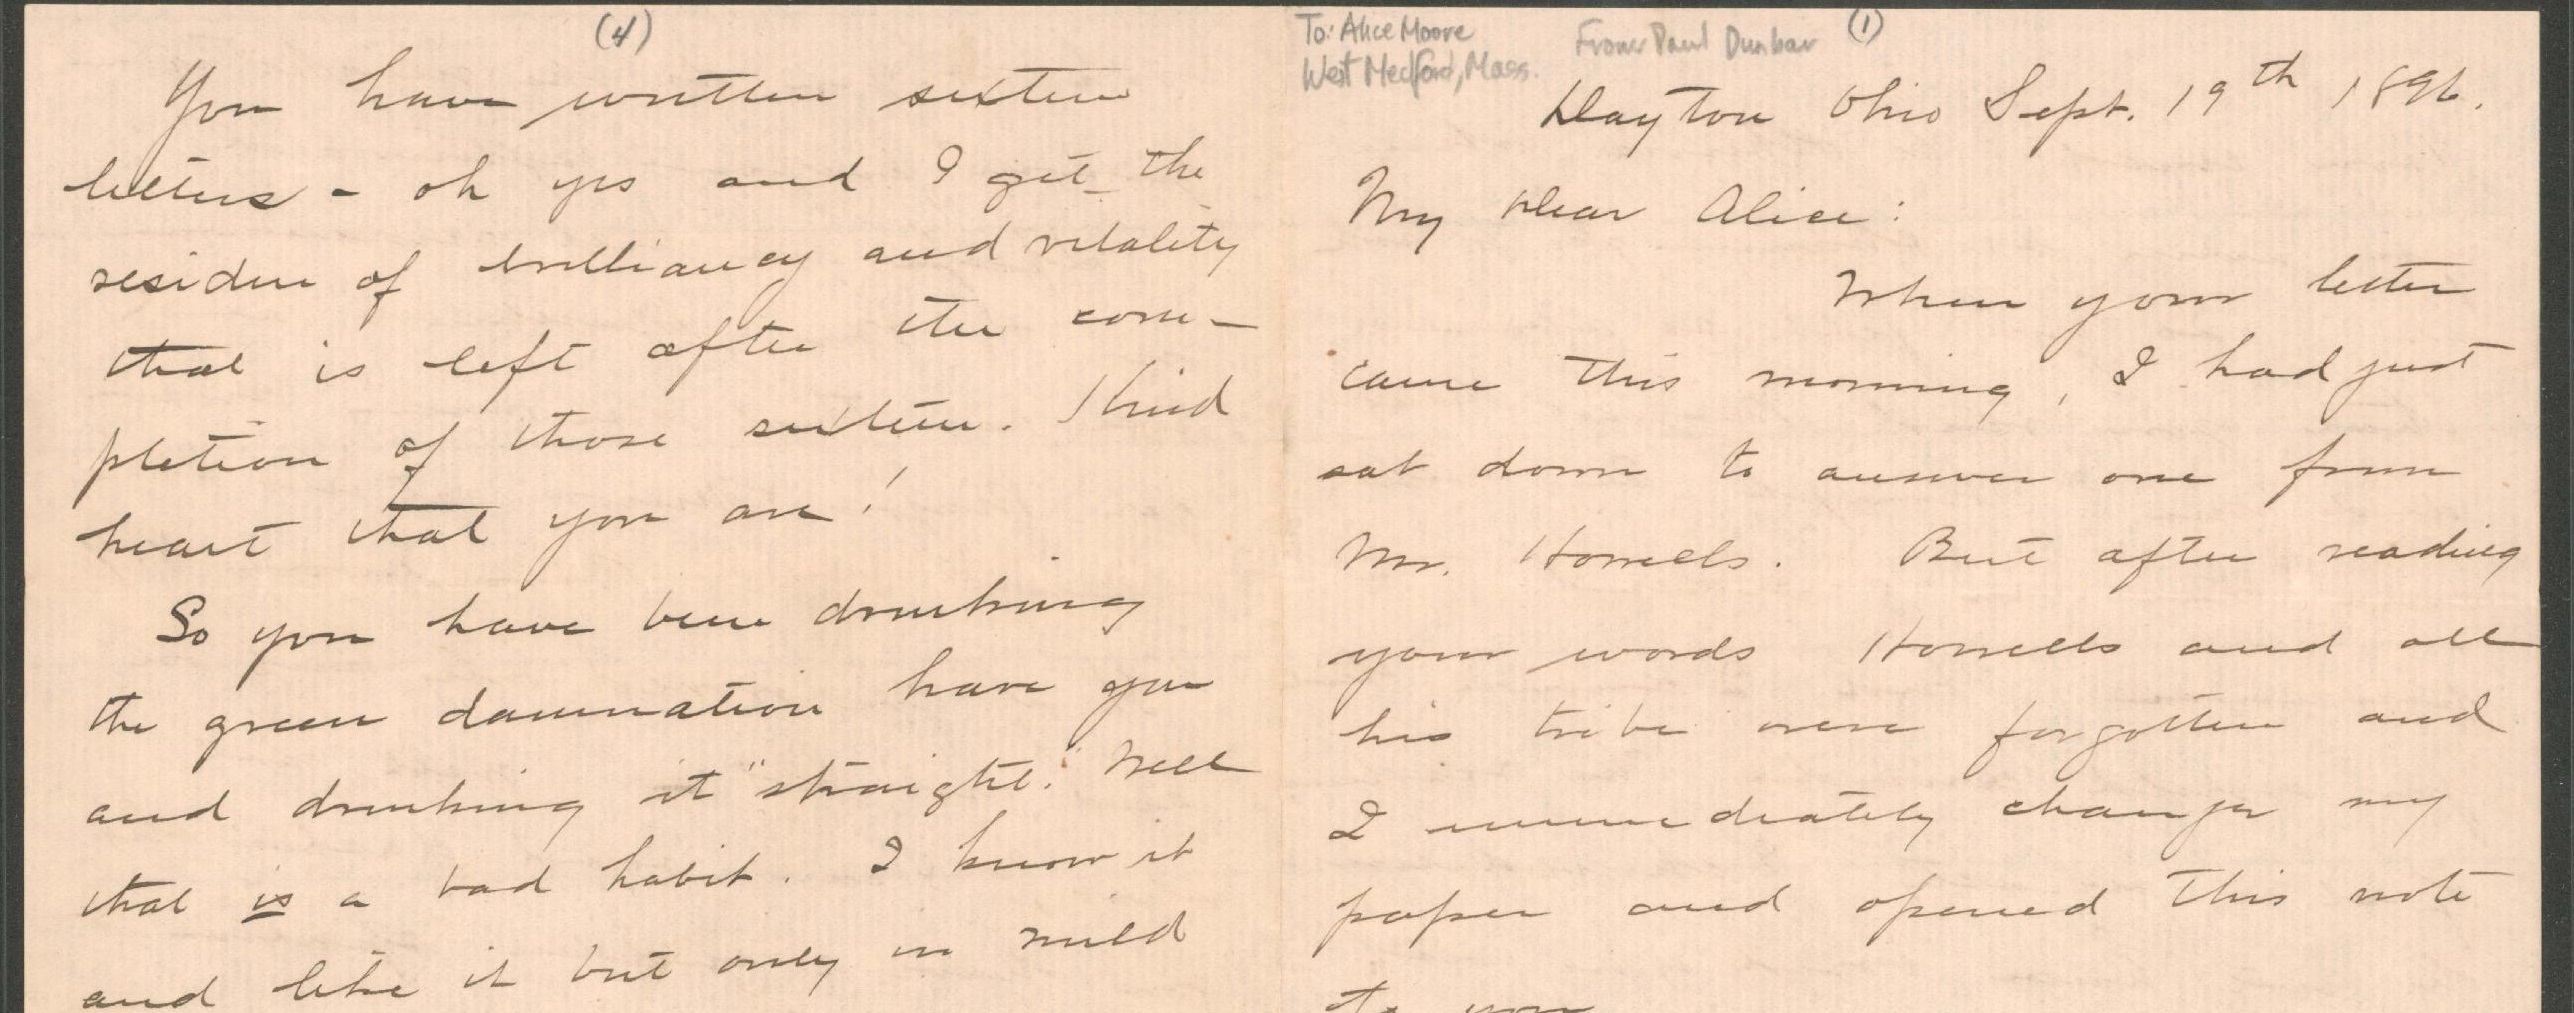 (4)
You have written sixteen
letters - oh yes and I get the
residue of brilliancy and vitality
that is left after the com-
pletion of those sixteen. Kind
heart that you are!
So you have been drinking
the green damnation have you
and drinking it "straight." Well
that is a bad habit. I know it
and like it but only in mild
To: Alice Moore
West Medford, Mass.
From Paul Dunbar
(1)
Dayton Ohio Sept. 19th 1896.
My dear Alice:
When your letter
came this morning, I had just
sat down to answer one from
Mr. Howells. But after reading
your words Howells and all
his tribe were forgotten and
I immediately change my
paper and opened this note
to you